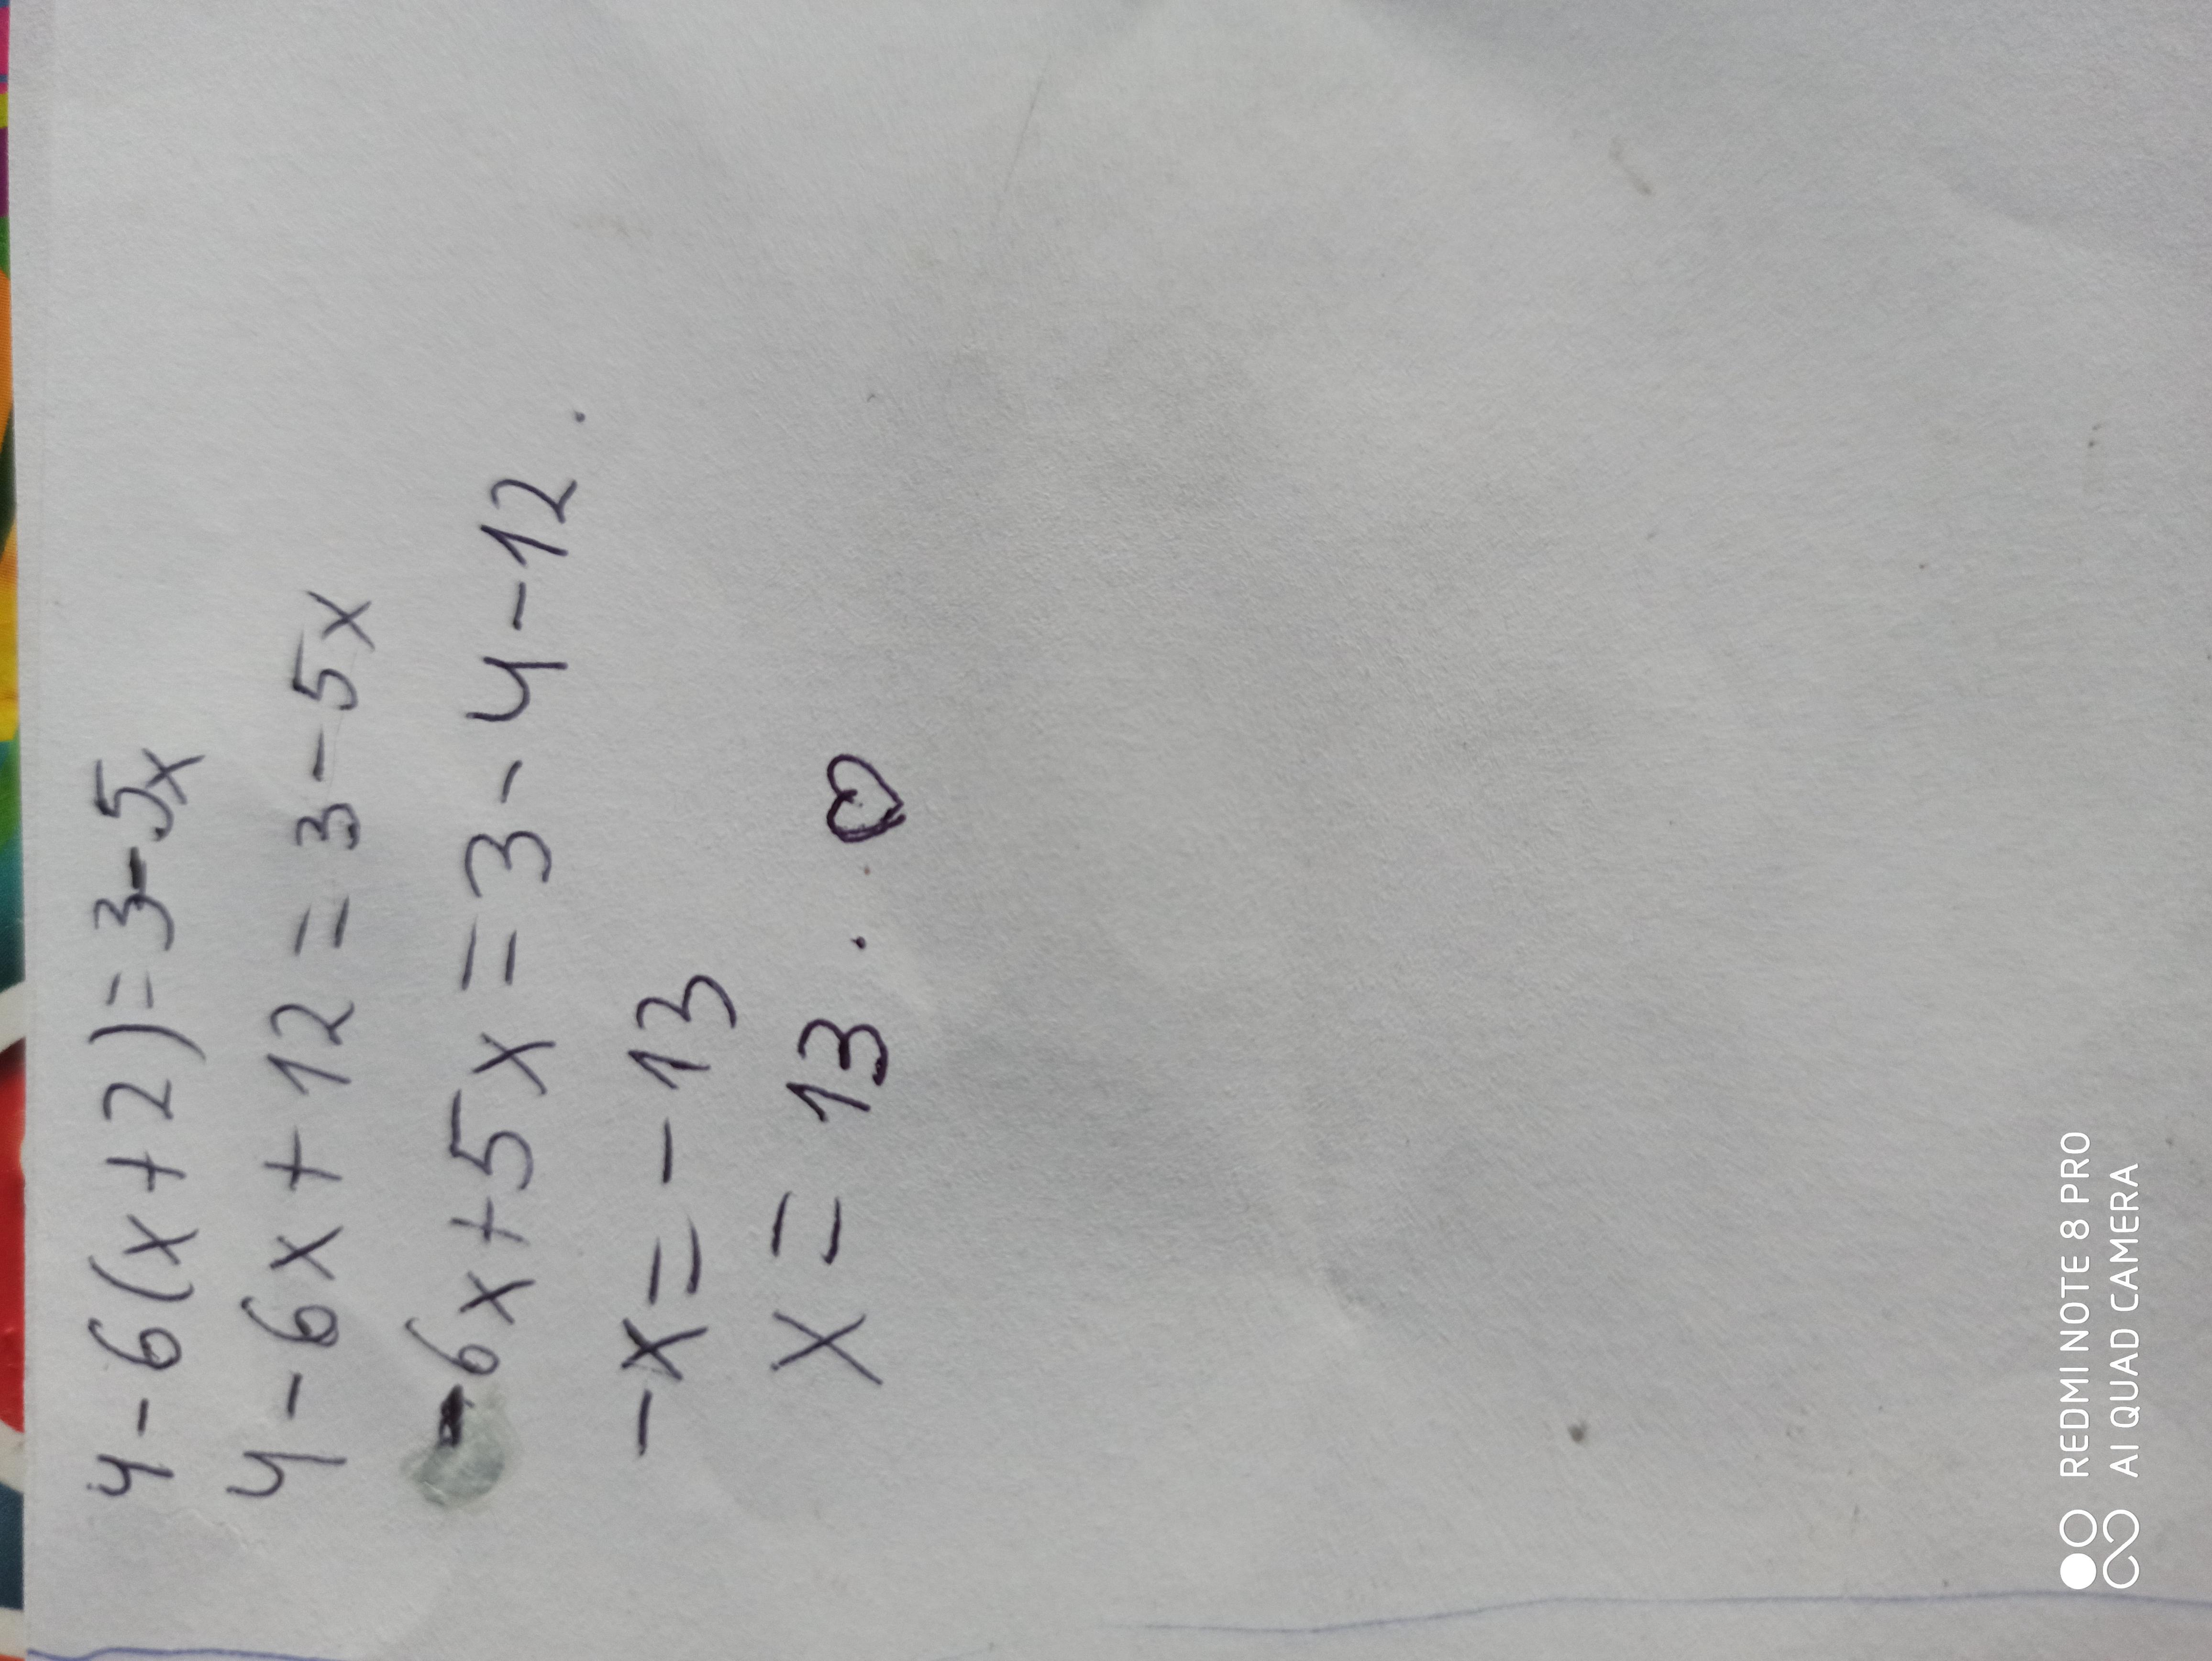 4-6(x+2)=3-5x
4-6x+12=3-5x
-6x+5x=3-4-12.
-x=-13
x=13. ♡
REDMI NOTE 8 PRO
AI QUAD CAMERA